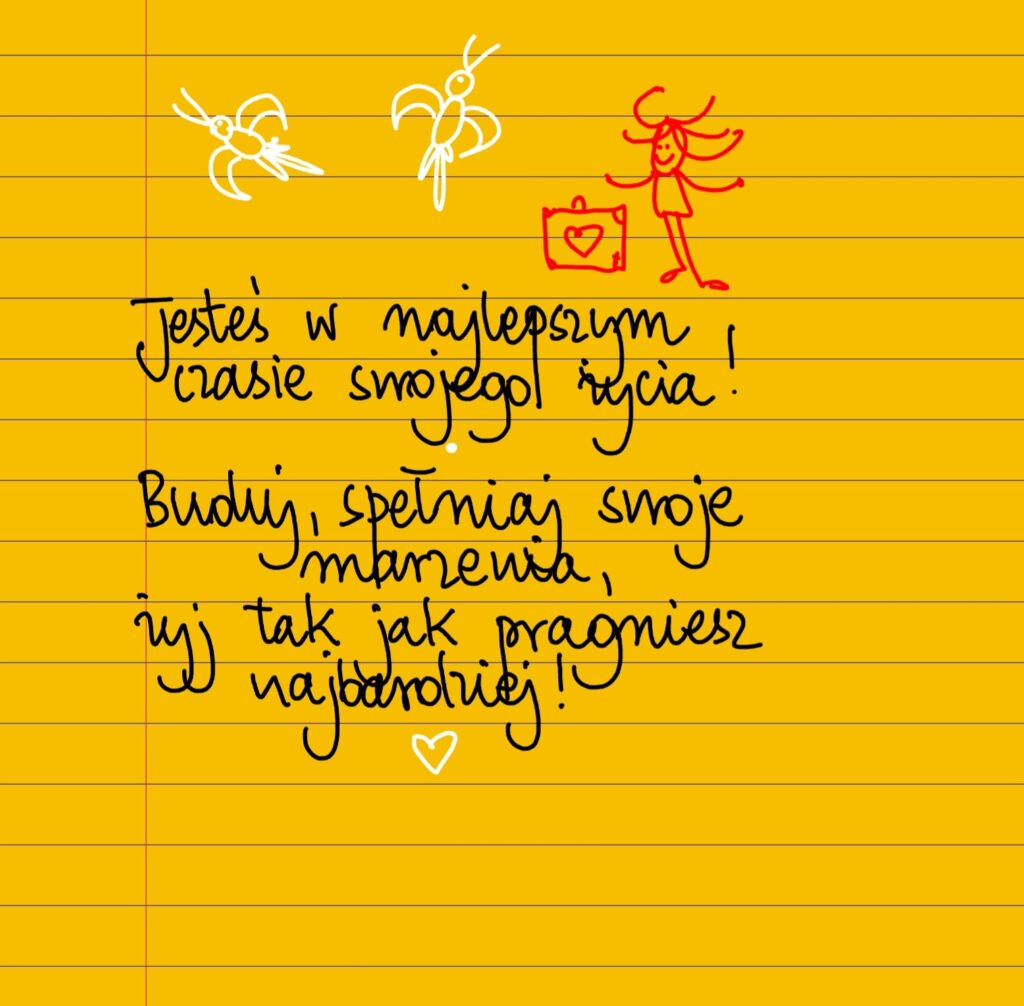 Jesteś w najlepszym
czasie swojego życia!
Buduj, spełniaj swoje
marzenia,
żyj tak jak pragniesz
najbardziej!